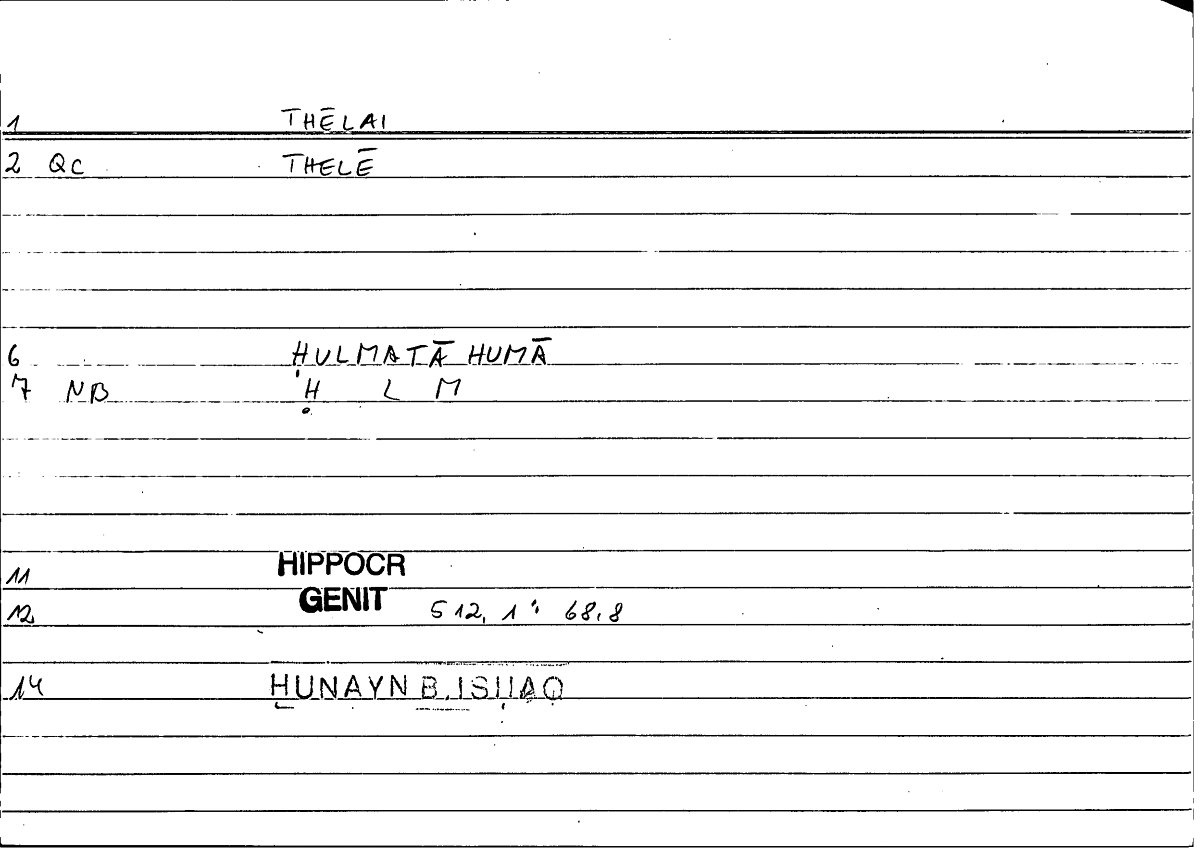 1 THĒLAI
2 QC THELĒ
6 ḤULMATĀ HUMĀ
7 NB Ḥ L M
11 HIPPOCR
12 GENIT 512,1 : 68,8
14 ḤUNAYN B.ISḤAQ